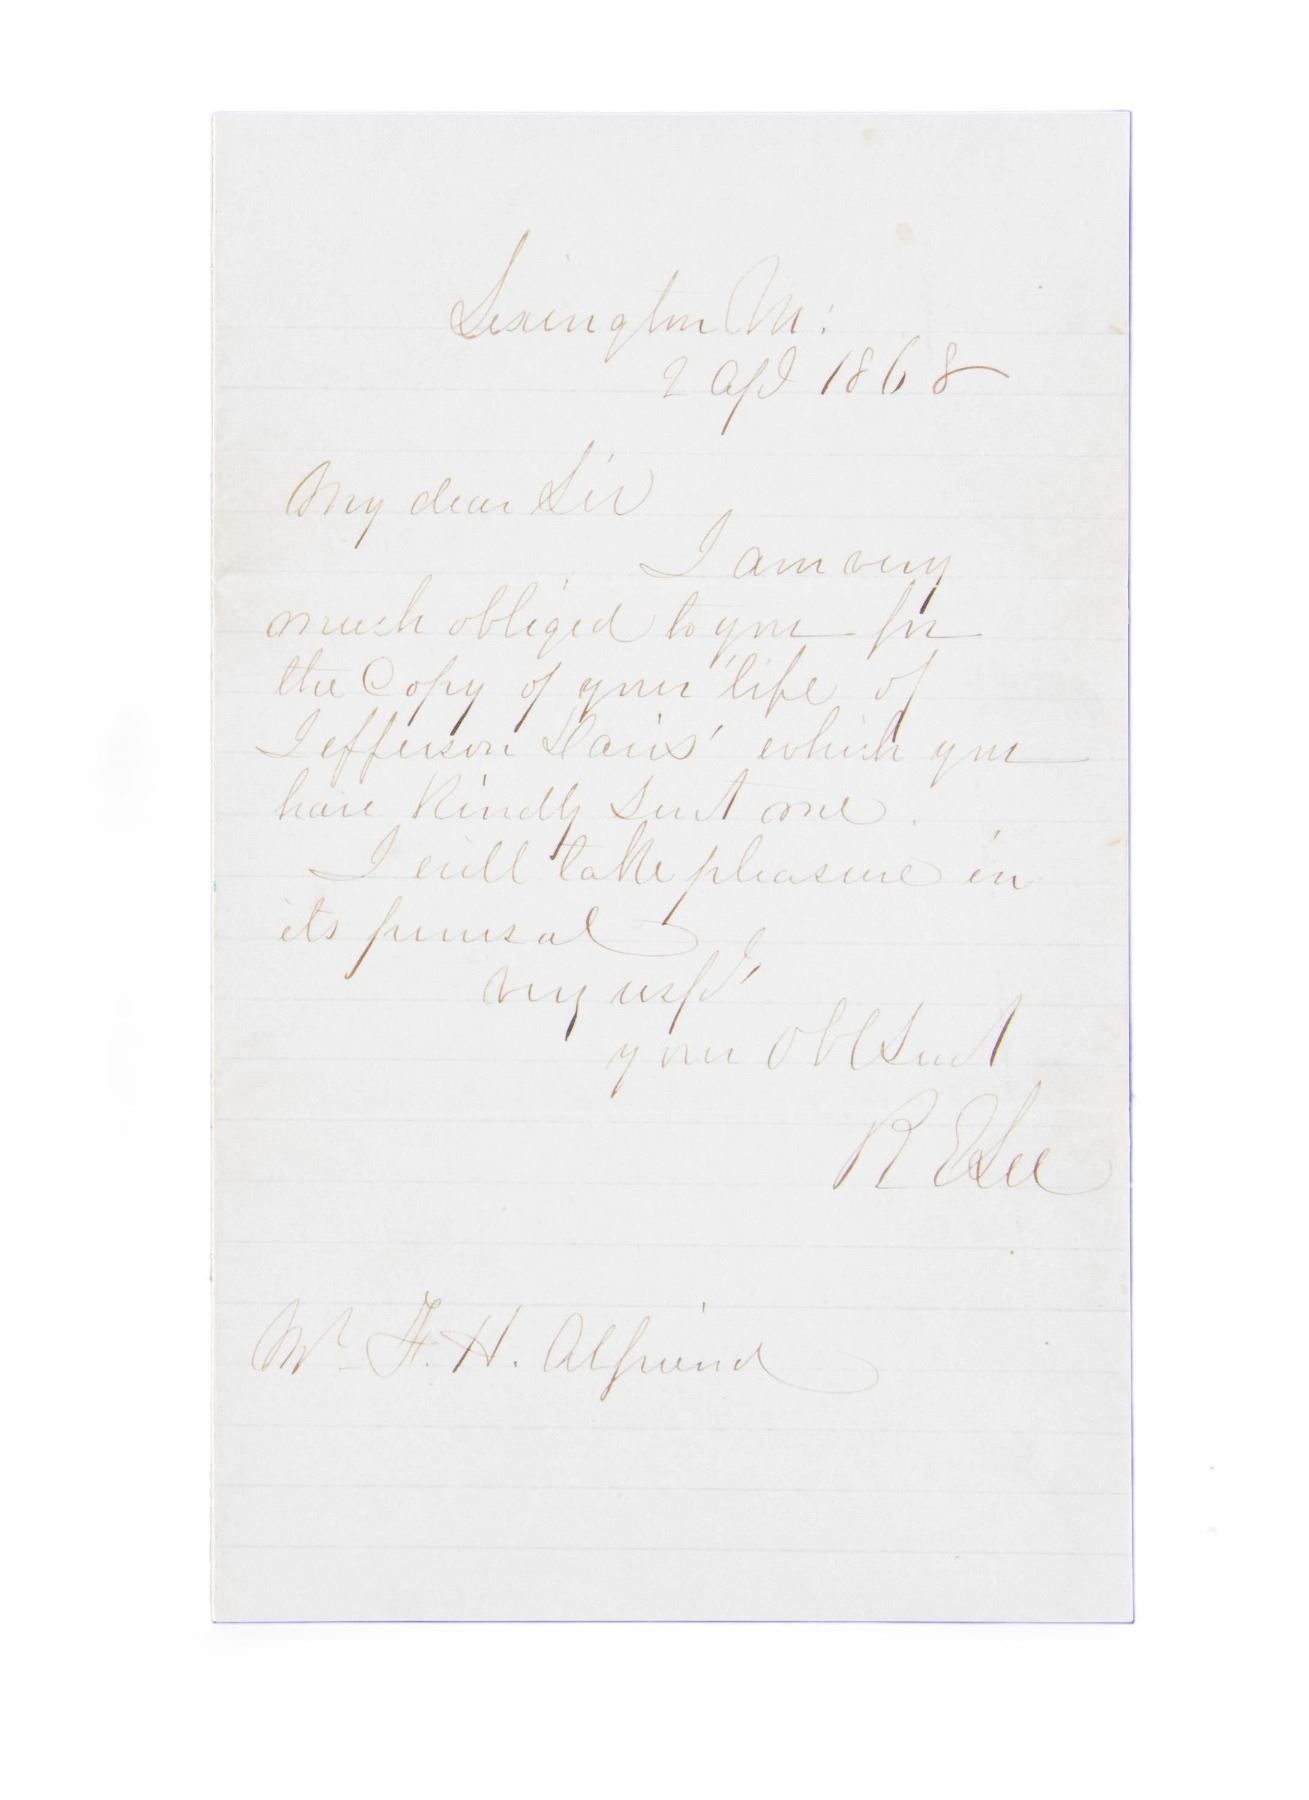 Lexington Va:
2 Apl 1868
My dear Sir
I am very
much obliged to you for
the Copy of your 'life of
Jefferson Davis' which you
have kindly sent me.
I will take pleasure in
its perusal
Very respy
your Obt Servt
R E Lee
Mr F. H. Alfriend